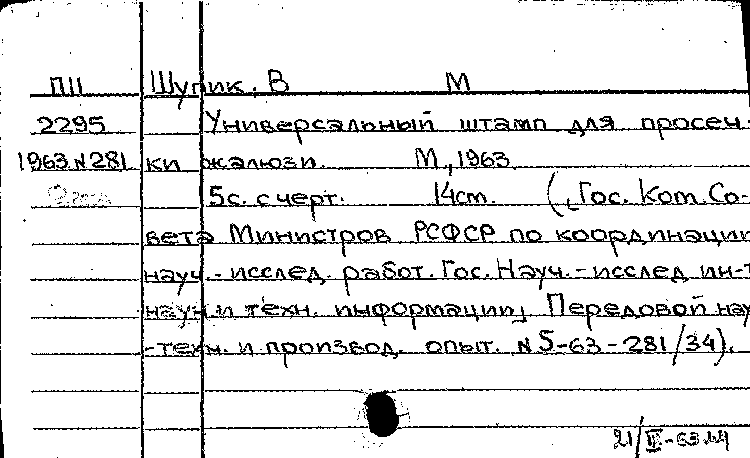 ПII Шупик, В М
2295 Универсальный штамп для просеч-
1963 N281 ки жалюзи. М., 1963
5с. с черт. 14cm. („Гос. Ком. Со-
вета Министров РСФСР по координации
науч.-исслед. работ. Гос. Науч.-исслед ин-т
научн. и техн. информации„ Передовой
-техн. и производ. опыт. N 5-63-281/34).